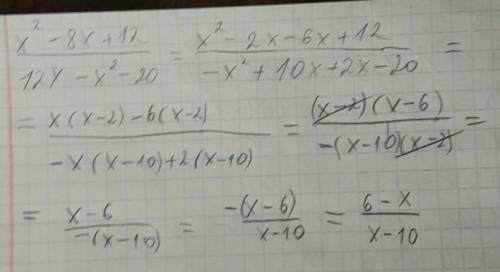 (x² - 8x + 12)/(12x - x² - 20) = (x² - 2x - 6x + 12)/(-x² + 10x + 2x - 20) =
= (x(x-2) - 6(x-2))/(-x(x-10) + 2(x-10)) = ((x-2)(x-6))/(-(x-10)(x-2)) =
= (x-6)/(-(x-10)) = (-(x-6))/(x-10) = (6-x)/(x-10)